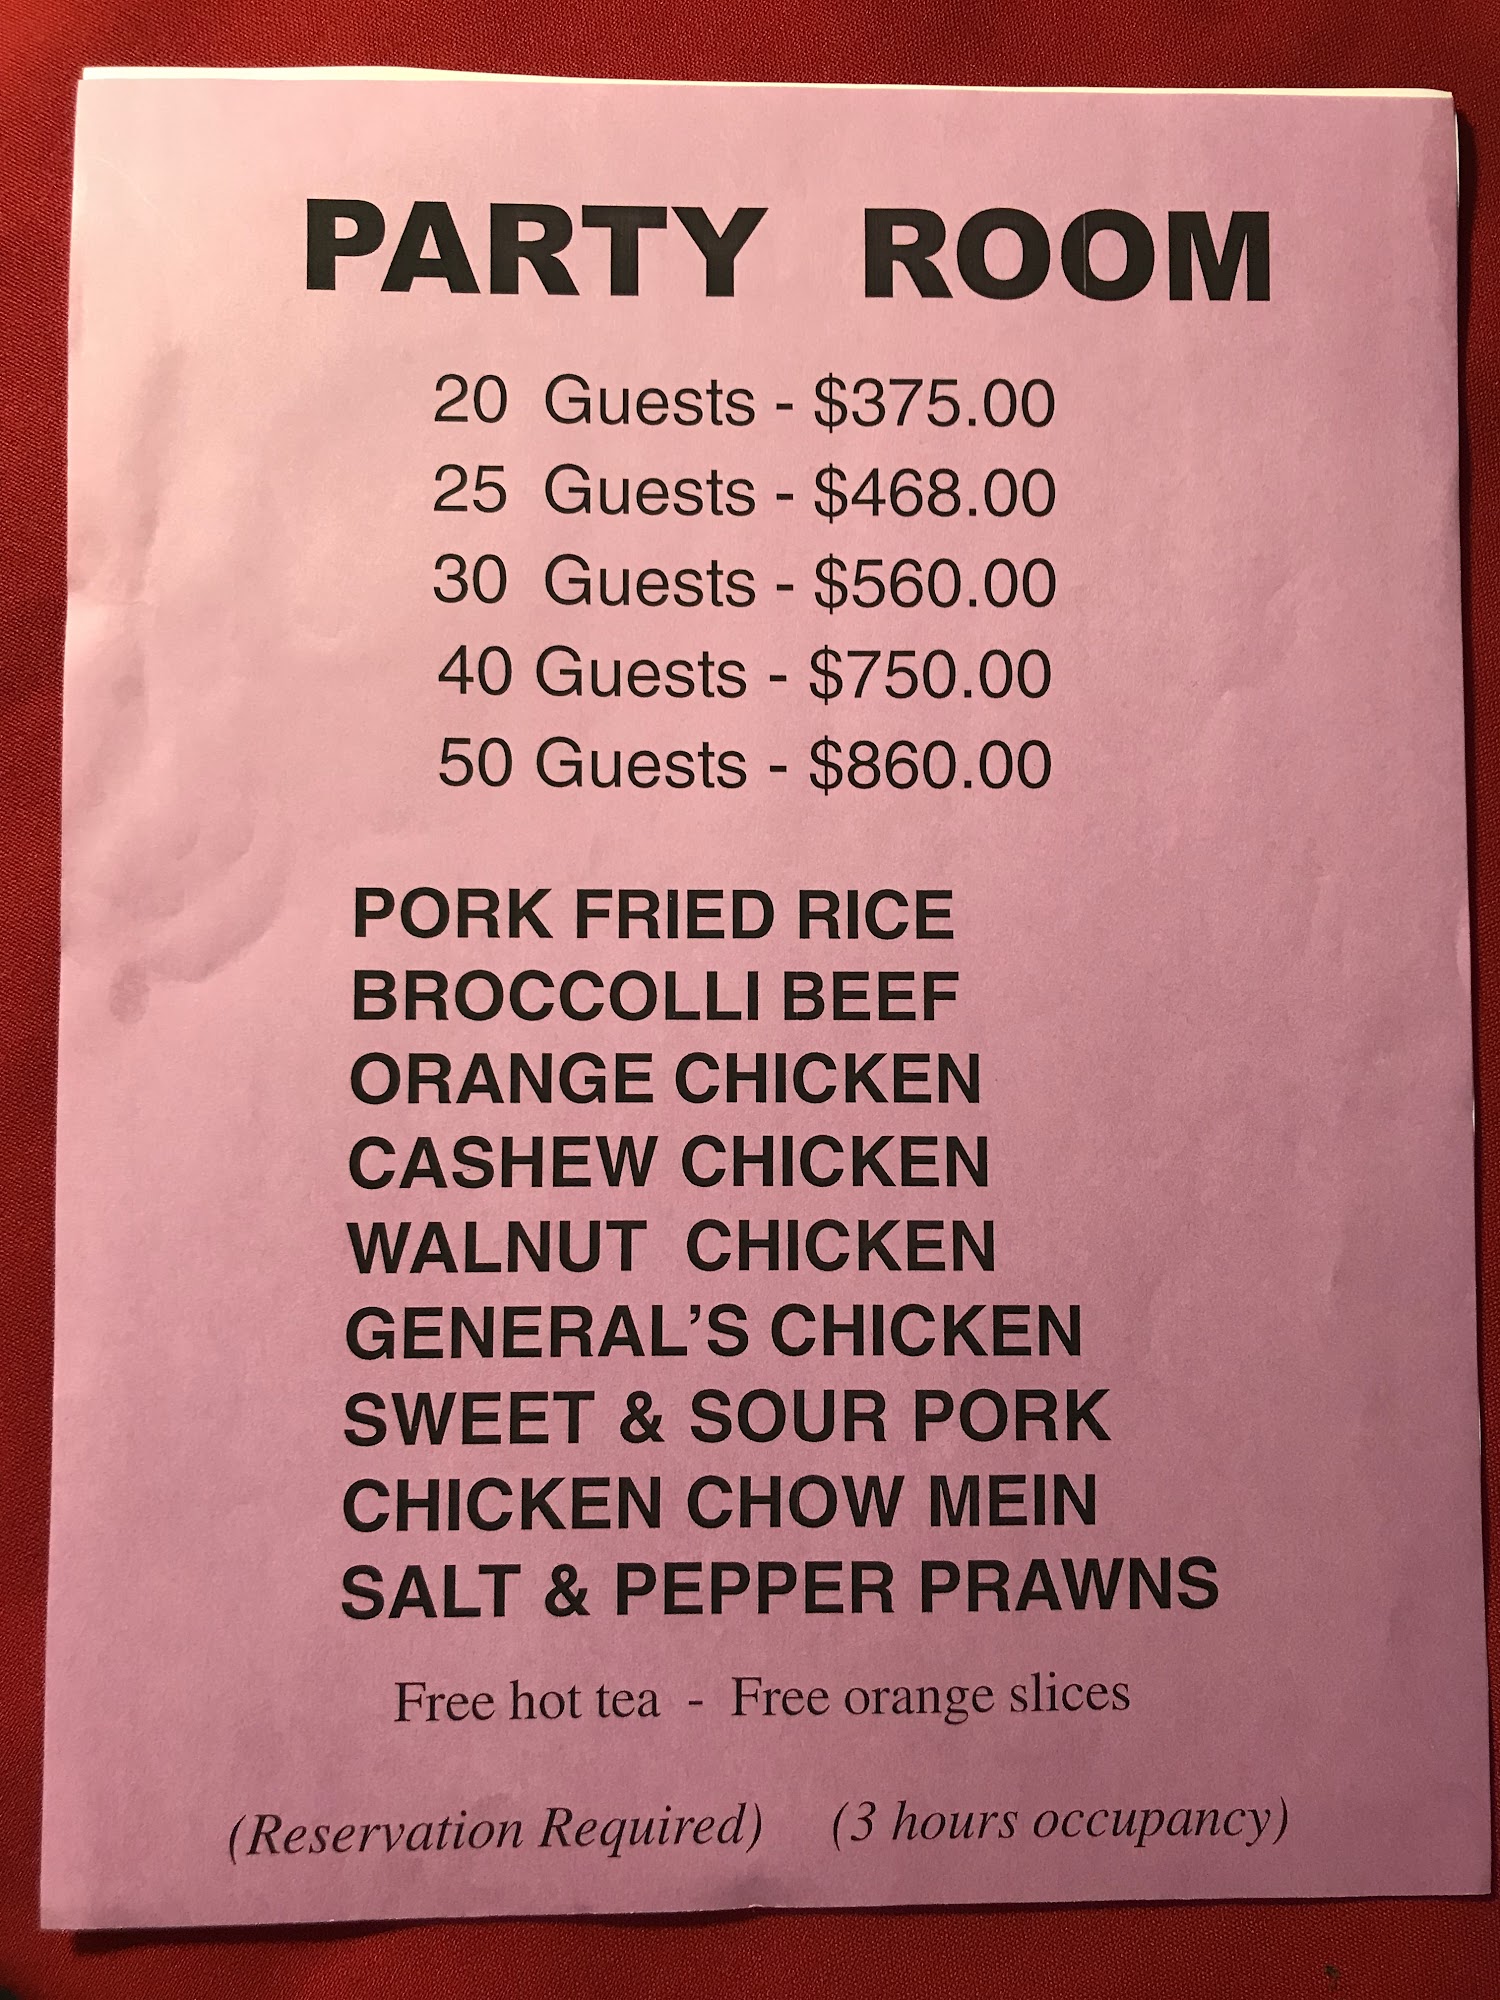 PARTY ROOM
20 Guests - $375.00
25 Guests - $468.00
30 Guests - $560.00
40 Guests - $750.00
50 Guests - $860.00
PORK FRIED RICE
BROCCOLLI BEEF
ORANGE CHICKEN
CASHEW CHICKEN
WALNUT CHICKEN
GENERAL'S CHICKEN
SWEET & SOUR PORK
CHICKEN CHOW MEIN
SALT & PEPPER PRAWNS
Free hot tea - Free orange slices
(Reservation Required) (3 hours occupancy)